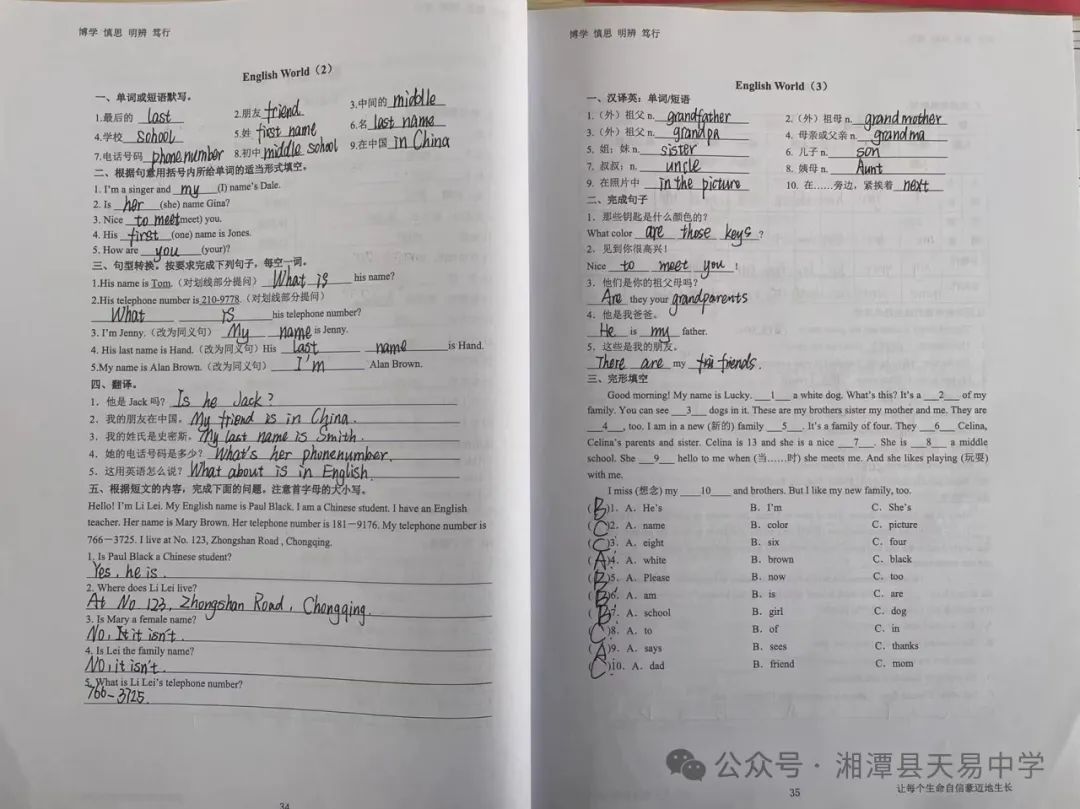 博学 慎思 明辨 笃行
English World（2）
一、单词或短语默写。
1.最后的 last 2.朋友 friend 3.中间的 middle
4.学校 school 5.姓 first name 6.名 last name
7.电话号码 phone number 8.初中 middle school 9.在中国 in China
二、根据句意用括号内所给单词的适当形式填空。
1. I'm a singer and my (I) name's Dale.
2. Is her (she) name Gina?
3. Nice to meet(meet) you.
4. His first (one) name is Jones.
5. How are you (your)?
三、句型转换。按要求完成下列句子，每空一词。
1.His name is Tom.（对划线部分提问） What is his name?
2.His telephone number is 210-9778.（对划线部分提问）
What is his telephone number?
3. I'm Jenny.（改为同义句） My name is Jenny.
4. His last name is Hand.（改为同义句）His last name is Hand.
5.My name is Alan Brown.（改为同义句） I'm Alan Brown.
四、翻译。
1．他是 Jack 吗？ Is he Jack?
2．我的朋友在中国。 My friend is in China.
3．我的姓氏是史密斯。 My last name is Smith.
4．她的电话号码是多少？ What's her phonenumber.
5．这用英语怎么说？ What about is in English.
五、根据短文的内容，完成下面的问题，注意首字母的大小写。
Hello! I'm Li Lei. My English name is Paul Black. I am a Chinese student. I have an English
teacher. Her name is Mary Brown. Her telephone number is 181－9176. My telephone number is
766－3725. I live at No. 123, Zhongshan Road , Chongqing.
1. Is Paul Black a Chinese student?
Yes, he is.
2. Where does Li Lei live?
At No 123, Zhongshan Road, Chongqing.
3. Is Mary a female name?
No, It it isn't.
4. Is Lei the family name?
No, it isn't.
5. What is Li Lei's telephone number?
766-3725.
34
博学 慎思 明辨 笃行
English World（3）
一、汉译英：单词/短语
1.（外）祖父 n. grandfather 2.（外）祖母 n. grandmother
3.（外）祖父 n. grandpa 4. 母亲或父亲 n. grandma
5. 姐；妹 n. sister 6. 儿子 n. son
7. 叔叔；n. uncle 8. 姨母 n. Aunt
9. 在照片中 in the picture 10. 在……旁边，紧挨着 next
二、完成句子
1．那些钥匙是什么颜色的？
What color are those keys ?
2．见到你很高兴！
Nice to meet you !
3．他们是你的祖父母吗？
Are they your grandparents
4．他是我爸爸。
He is my father.
5．这些是我的朋友。
There are my friends.
三、完形填空
Good morning! My name is Lucky. 1 a white dog. What's this? It's a 2 of my
family. You can see 3 dogs in it. These are my brothers sister my mother and me. They are
4 , too. I am in a new (新的) family 5 . It's a family of four. They 6 Celina,
Celina's parents and sister. Celina is 13 and she is a nice 7 . She is 8 a middle
school. She 9 hello to me when (当……时) she meets me. And she likes playing (玩耍)
with me.
I miss (想念) my 10 and brothers. But I like my new family, too.
(B)1. A．He's B．I'm C．She's
(C)2. A．name B．color C．picture
(C)3. A．eight B．six C．four
(A)4. A．white B．brown C．black
(B)5. A．Please B．now C．too
(B)6. A．am B．is C．are
(B)7. A．school B．girl C．dog
(C)8. A．to B．of C．in
(A)9. A．says B．sees C．thanks
(C)10. A．dad B．friend C．mom
公众号 · 湘潭县天易中学
让每个生命自信豪迈地生长
35